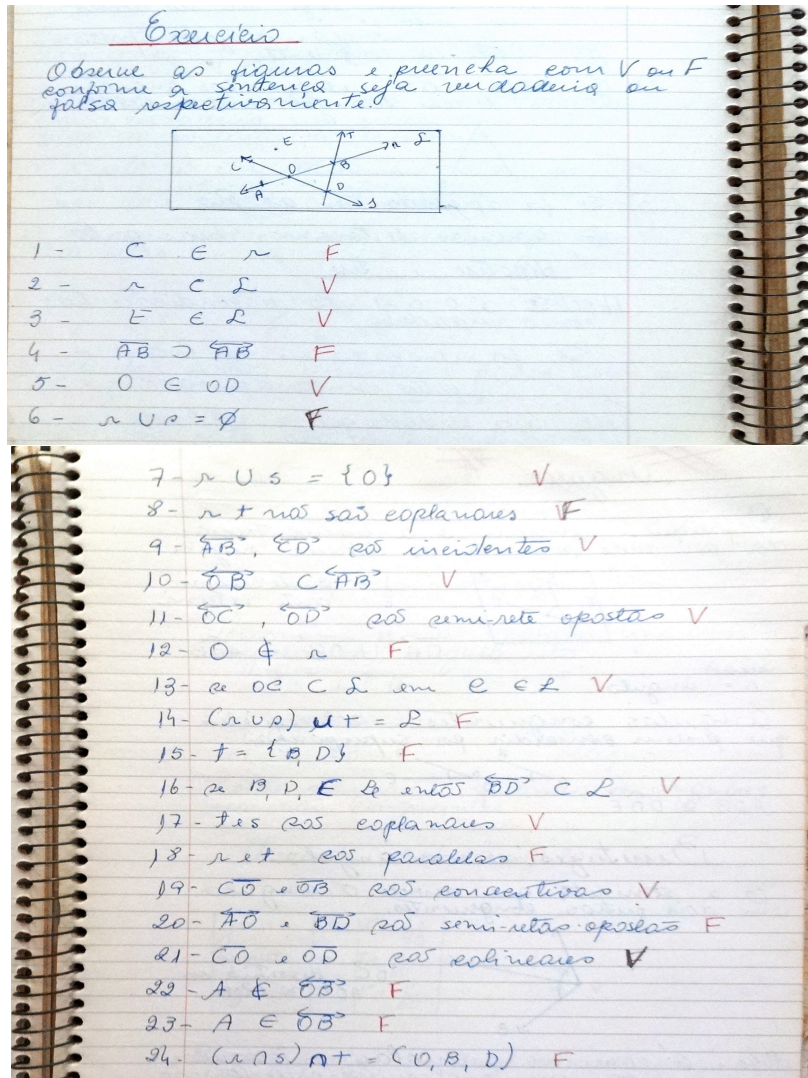 Exercício
Observe as figuras e preencha com V ou F
conforme a sentença seja verdadeira ou
falsa respectivamente.
E T r L
C O B
A D s
1 - C ∈ r F
2 - r ⊂ L V
3 - E ∈ L V
4 - AB ⊃ AB F
5 - O ∈ OD V
6 - r ∪ s = ∅ F
7 - r ∪ s = {O} V
8 - r t não são coplanares F
9 - AB, CD são incidentes V
10 - OB ⊂ AB V
11 - OC, OD são semi-rete opostas V
12 - O ∉ r F
13 - se OC ⊂ L em C ∈ L V
14 - (r ∪ s) ∪ t = L F
15 - t = {B, D} F
16 - se B, D, ∈ L então BD ⊂ L V
17 - t e s são coplanares V
18 - r e t são paralelas F
19 - CO e OB são consecutivas V
20 - AO e BD são semi-retas opostas F
21 - CO e OD são colineares V
22 - A ∉ OB F
23 - A ∈ OB F
24 - (r ∩ s) ∩ t = (O, B, D) F